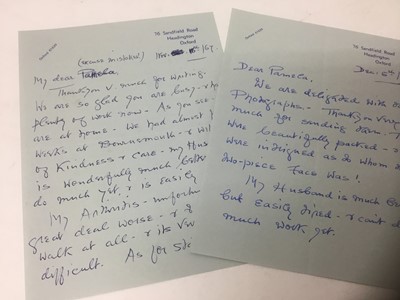 76 Sandfield Road
Headington
Oxford
(excuse mistake!)
My dear Pamela
Thank you v. much for writing.
We are so glad you are busy - &
plenty of work now. As you see
are at home. We had almost
weeks at Bournemouth &
of Kindness & Care. My Hus
is wonderfully much better
do much yet, & is easily
My Arthritis - unfortun
great deal worse - &
walk at all - & it's v
difficult. As for
76 Sandfield Road
Headington
Oxford
Dec.
Dear Pamela.
We are delighted with
Photographs - Thank you very
much for sending them.
were beautifully packed -
were intrigued as to whom
two-piece face was!
My Husband is much b
but easily tired - & can't d
much work yet.